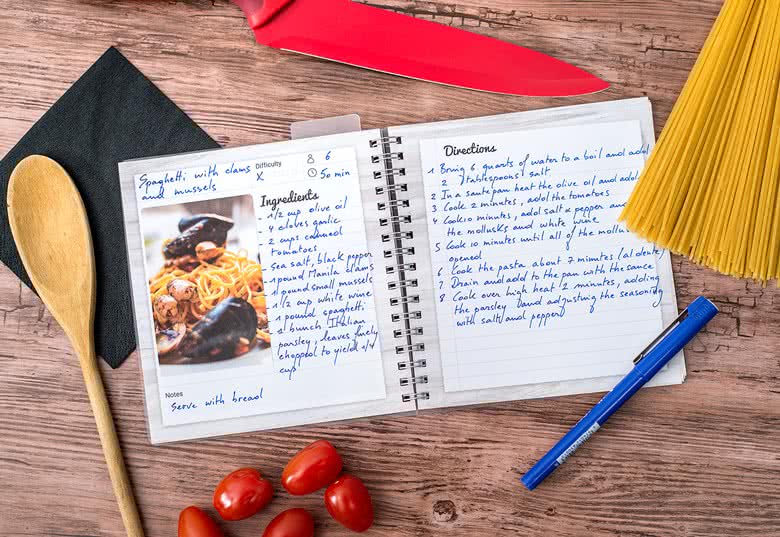 Spaghetti with clams
and mussels
Difficulty
X
6
50 min
Ingredients
- 1/2 cup olive oil
4 cloves garlic
2 cups canned
tomatoes
Sea salt, black pepper
1 pound Manila clams
1 pound small mussels
1/2 cup white wine
1 pound spaghetti
bunch Italian
parsley, leaves finely
chopped to yield 1/4
cup
Notes
Serve with bread
Directions
1 Bring 6 quarts of water to a boil and add
2 tablespoons salt
2 In a saute pan heat the olive oil and add
3 Cook 2 minutes, add the tomatoes
4 Cook 10 minutes, add salt & pepper and
the mollusks and white wine
5 Cook 10 minutes until all of the
opened
6 Cook the pasta about 7 minutes (al dente)
7 Drain and add to the pan with the sauce
8 Cook over high heat 2 minutes, adding
the parsley and adjusting the seasoning
with salt and pepper